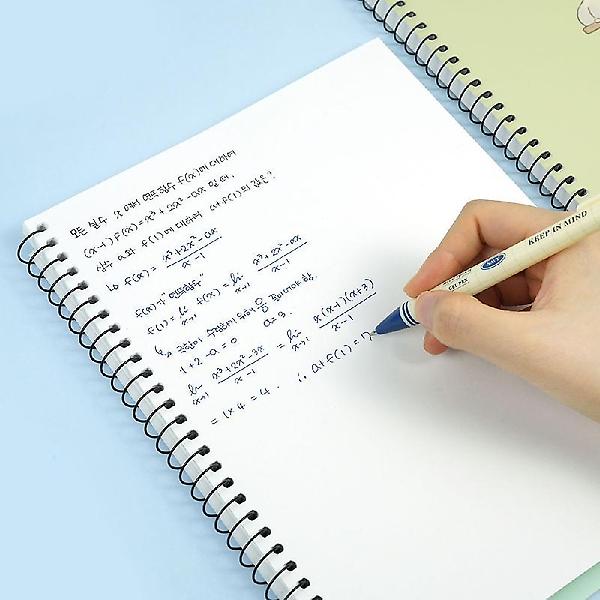 모든 실수 x에서 연속함수 f(x)에 대하여
(x-1)f(x)=x³+2x²-ax 일 때,
실수 a와 f(1)에 대하여 a+f(1)의 값은?
↳ f(x) = x³+2x²-ax / x-1
f(x)가 "연속함수"
f(1) = lim x→1 f(x) = lim x→1 x³+2x²-ax / x-1
0
1+2-a=0 a=3.
lim x→1 x³+2x²-3x / x-1 = lim x→1 x(x-1)(x+3) / x-1
= 1×4 = 4. ∴ a+f(1)=7
KEEP IN MIND
GEL PEN